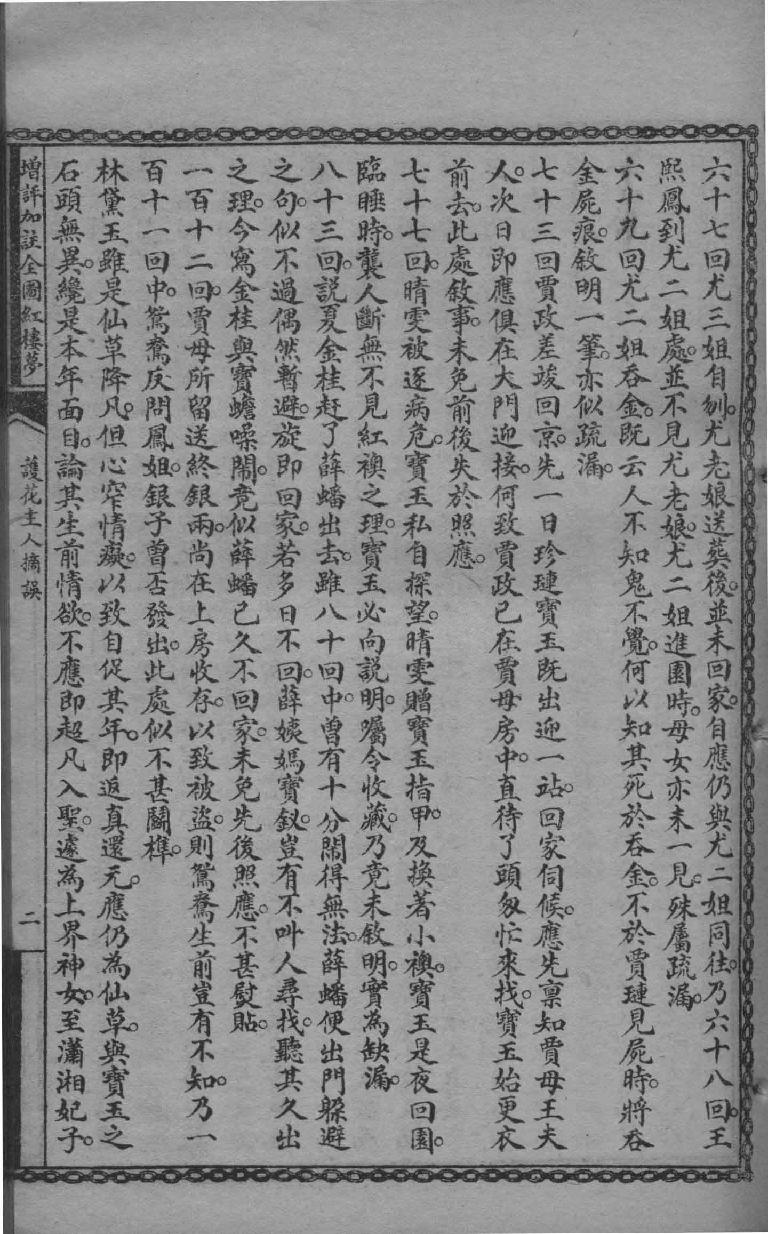 六十七回尤三姐自刎。尤老娘送葬後。並未回家。自應仍與尤二姐同往。乃六十八回。王
熙鳳到尤二姐處。並不見尤老娘。尤二姐進園時。母女亦未一見。殊屬疏漏。
六十九回尤二姐吞金。既云人不知鬼不覺。何以知其死於吞金。不於賈璉見屍時。將吞
金屍痕。敘明一筆。亦似疏漏。
七十三回賈政差竣回京。先一日珍璉寶玉既出迎一站。回家伺候。應先稟知賈母王夫
人。次日即應俱在大門迎接。何致賈政已在賈母房中。直待丫頭匆忙來找。寶玉始更衣
前去。此處敘事。未免前後失於照應。
七十七回。晴雯被逐病危。寶玉私自探望。晴雯贈寶玉指甲。及換著小襖。寶玉是夜回園。
臨睡時。襲人斷無不見紅襖之理。寶玉必向說明。囑令收藏。乃竟未敘明。實為缺漏。
八十三回。說夏金桂赶了薛蟠出去。雖八十回中。曾有十分鬧得無法。薛蟠便出門躲避
之句。似不過偶然暫避。旋即回家。若多日不回。薛姨媽寶釵。豈有不叫人尋找。聽其久出
之理。今寫金桂與寶蟾噪鬧。竟似薛蟠已久不回家。未免先後照應。不甚熨貼。
一百十二回。賈母所留送終銀兩。尚在上房收存。以致被盜。則鴛鴦生前豈有不知。乃一
百十一回中。鴛鴦反問鳳姐。銀子曾否發出。此處似不甚鬭榫。
林黛玉雖是仙草降凡。但心窄情癡。以致自促其年。即返真還元。應仍為仙草。與寶玉之
石頭無異。纔是本年面目。論其生前情欲。不應即超凡入聖。遽為上界神女。至瀟湘妃子。
增評加註全圖紅樓夢
護花主人摘誤
二